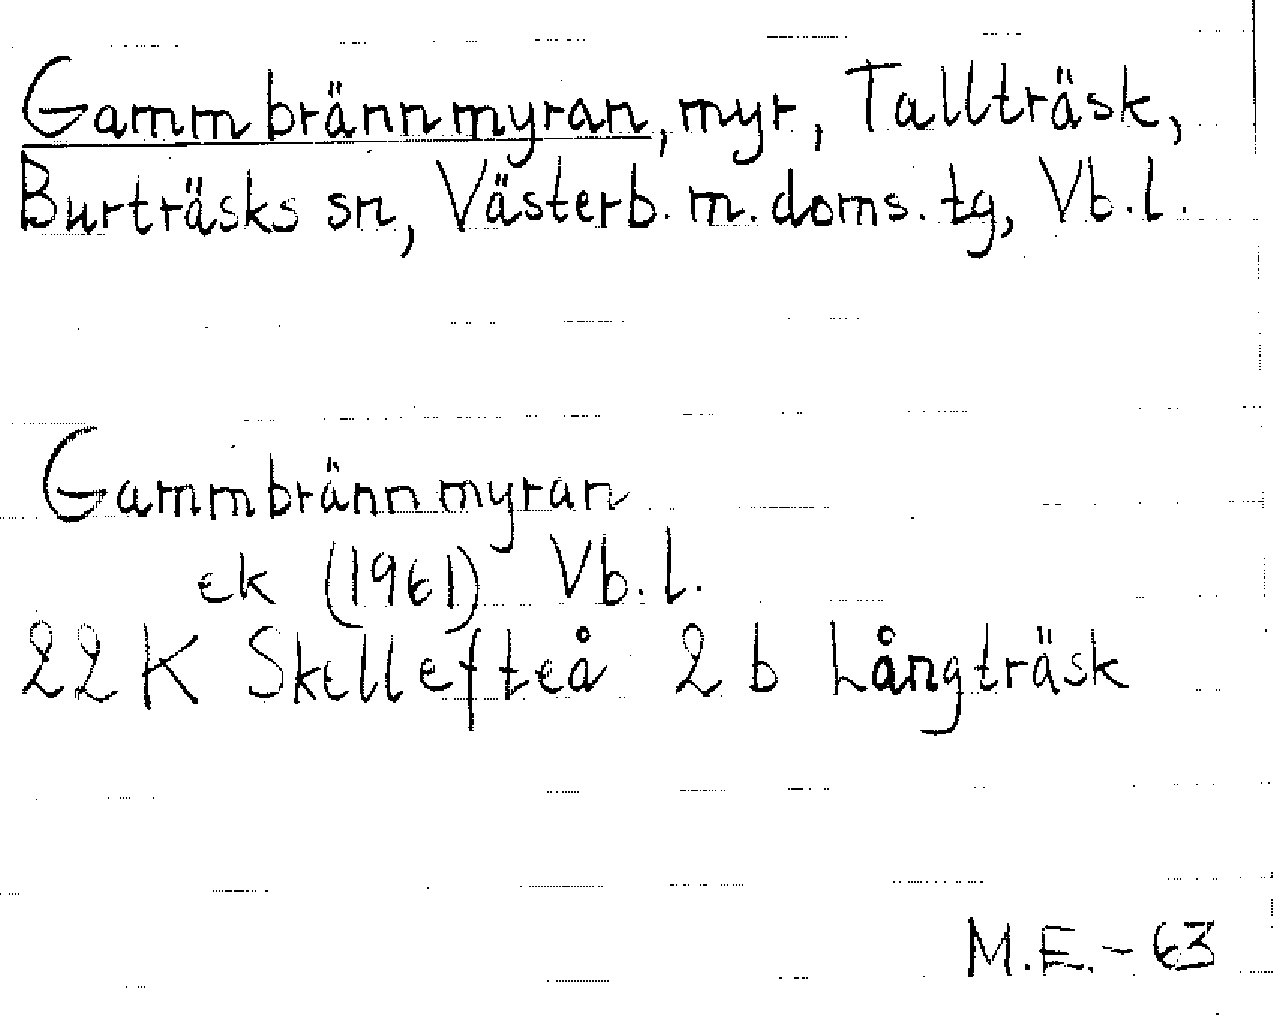 Gammbrännmyran, myr, Tallträsk,
Burträsks sn, Västerb. m. doms. tg, Vb. l.
Gammbrännmyran
ek (1961) Vb. l.
22 K Skellefteå 2 b Långträsk
M.E. - 63